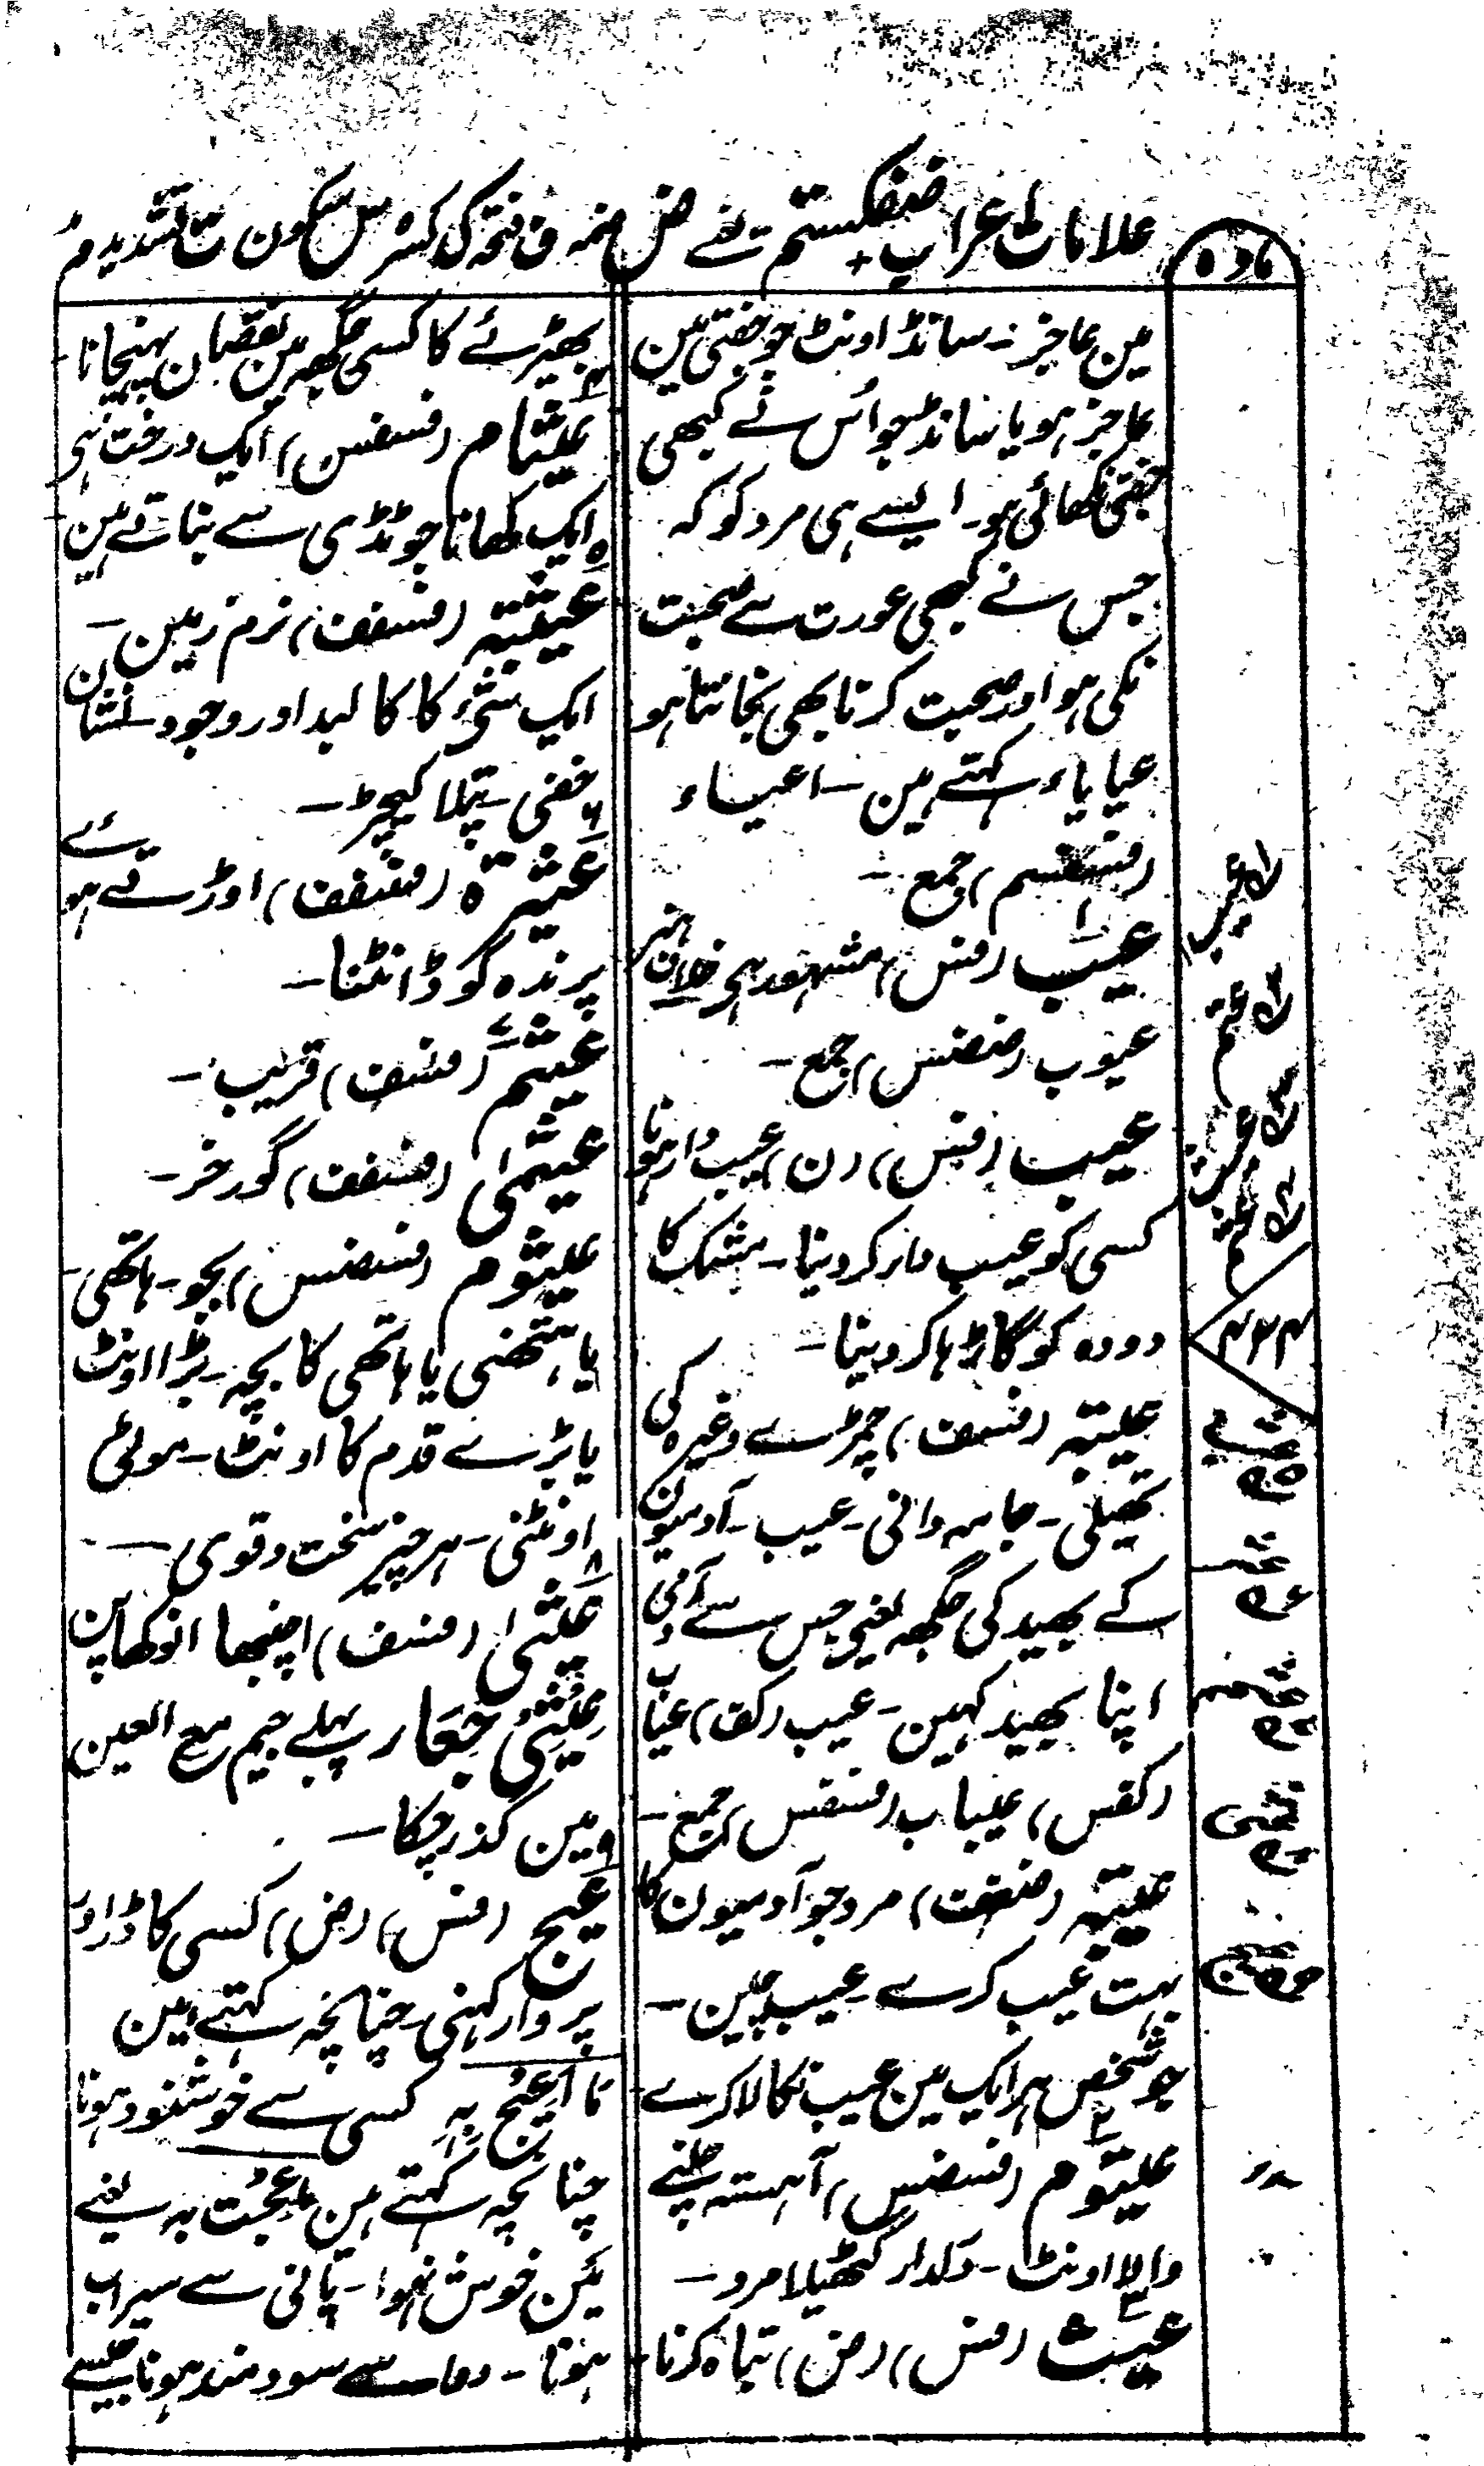 علامات اعراب ضفکستم یعنے ض ضمہ ف فتحہ ک کسرہ س سکون ت تشدید م
مادہ
مین عاجز۔ سانڈ اونٹ جو جفتی مین
عاجز ہو یا سانڈ جو اُس نے کبھی
جفتی نکھائی ہو۔ ایسے ہی مرد کو کہ
جس نے کبھی عورت سے صحبت
نکی ہو اور صحبت کرنا بھی نجانتا ہو
عیایاء کہتے ہین۔ اعیاء
جمع۔
عیب (فس) مشہور ہی خلاف ہنر
عیوب (ضضس) جمع۔
عیب (فس) (ن) عیب دار ہونا
کسی کو عیب دار کردینا۔ مشک کا
دودہ کو گاڑہا کردینا۔
عیبتہ (فسف) چمڑے وغیرہ کی
تھیلی۔ جامہ دانی۔ عیب۔ آدمیون
کے بھید کی جگہہ یعنی جس سے آدمی
اپنا بھید کہین۔ عیب (کف) عیاب
(کفس) عیبات (فسفس) جمع۔
عیبتہ (ضففت) مرد جو آدمیون کا
بہت عیب کرے۔ عیب چین۔
جو شخص ہر ایک مین عیب نکالا کرے
عیتوم (فسضس) آہستہ چلنے
والا اونٹ۔ دَلدار گٹھیلا مرد۔
عیث (فس) (ض) تباہ کرنا
بھیڑئے کا کسی جگہہ مین نقصان پہنچانا۔
عیثام (فسفس) ایک درخت ہی
ایک کھانا جو ٹڈی سے بناتے ہین
عیثتہ (فسفف) نرم زمین۔
ایک شئ کا کالبد اور وجود۔ نشان
خفی۔ پتلا کیچڑ۔
عیثرۃ (فسفف) اوڑتے ہوئے
پرندہ کو ڈانٹنا۔
عیثم (فسف) قریب۔
عیثمی (فسفف) گورخر۔
عیثوم (فسضس) بجو۔ ہاتھی۔
یا ہتھنی یا ہاتھی کا بچہ۔ بڑا اونٹ
یا بڑے قدم کا اونٹ۔ موٹی
اونٹنی۔ ہر چیز سخت و قوی۔
عیثی (فسف) اچنبھا انوکھاپن
عِیْثِی جَعَار پہلے جیم مع العین
مین گذر چکا۔
عیج (فس) (ض) کسی کا ڈر اور
پروار کہنی۔ چنانچہ کہتے ہین
مَا اَعِیْجُ بِہٖ کسی سے خوشنود ہونا
چنانچہ کہتے ہین مَا عِجْتُ بہ یعنے
مَین خوش نہوا۔ پانی سے سیراب
ہونا۔ دوا سے سودمند ہونا جیسے